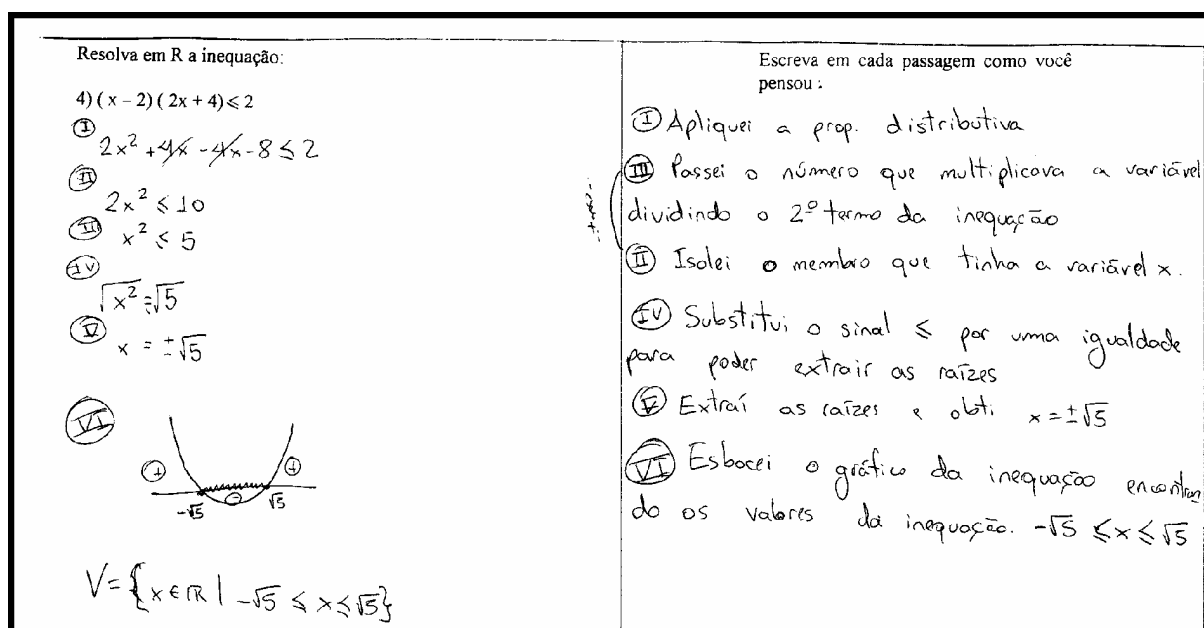 Resolva em R a inequação:
4) ( x – 2 ) ( 2x + 4 ) ⩽ 2
I
2x² + 4x - 4x - 8 ≤ 2
II
2x² ≤ 10
III x² ≤ 5
IV
√x² = √5
V
x = ±√5
VI
+ - +
-√5 √5
V = {x ∈ R | -√5 ≤ x ≤ √5}
Escreva em cada passagem como você
pensou :
I Apliquei a prop. distributiva
III Passei o número que multiplicava a variável
dividindo o 2º termo da inequação
II Isolei o membro que tinha a variável x.
IV Substitui o sinal ≤ por uma igualdade
para poder extrair as raízes
V Extraí as raízes e obti x = ±√5
VI Esbocei o gráfico da inequação encontran
do os valores da inequação. -√5 ≤ x ≤ √5